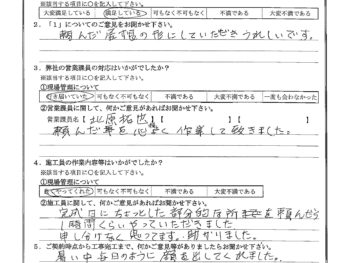 ※該当する項目に○を記入して下さい。
大変満足している 満足している 可もなく不可もなく 不満である 大変不満である
2．「1」についてのご意見をお聞かせ下さい。
頼んだ
にしていただきうれしいです。
3．弊社の営業課員の対応はいかがでしたか？
※該当する項目に○を記入して下さい。
①現場管理について
行き届いていた 可もなく不可もなく 不満である 大変不満である 一度も会わなかった
②営業課員に関して、何かご意見があればお聞かせ下さい。
営業課員名【北原拓也】【 】【 】
頼んだ事を心よく作業して頂きました。
4．施工員の作業内容等はいかがでしたか？
※該当する項目に○を記入して下さい。
①現場管理について
良くやってくれた 可もなく不可もなく 不満である 大変不満である
②施工員に関して、何かご意見があればお聞かせ下さい。
完成日にちょっとした部分的な所までを頼んだら
1時間くらいやっていただきました
申し分けなく思ってます。助かりました。
5．ご契約時点から工事完工まで、何かご意見等がありましたらお聞かせ下さい。
暑い中毎日のように顔を出してくれました。